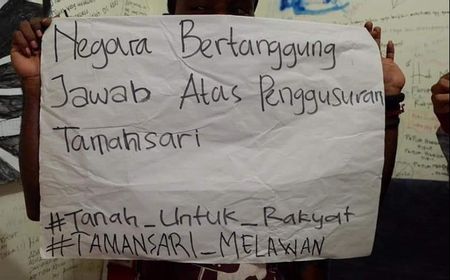 Negara Bertanggung
Jawab Atas Penggusuran
Tamansari
#Tanah_Untuk_Rakyat
#TAMANSARI_MELAWAN